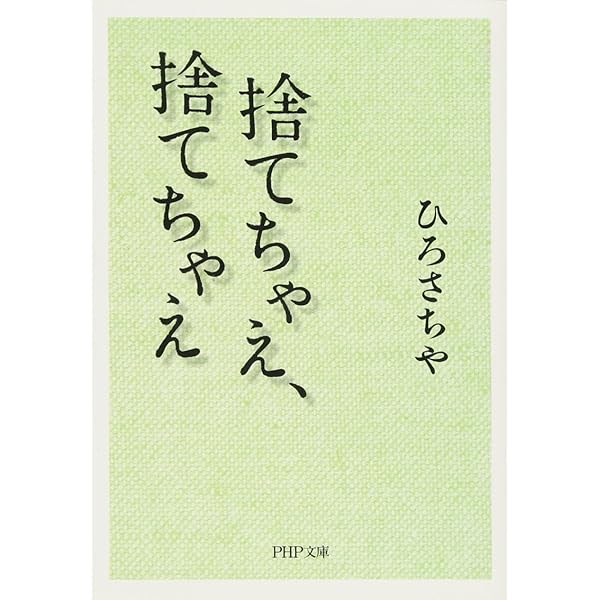 ひろさちや
捨てちゃえ、
捨てちゃえ
PHP文庫